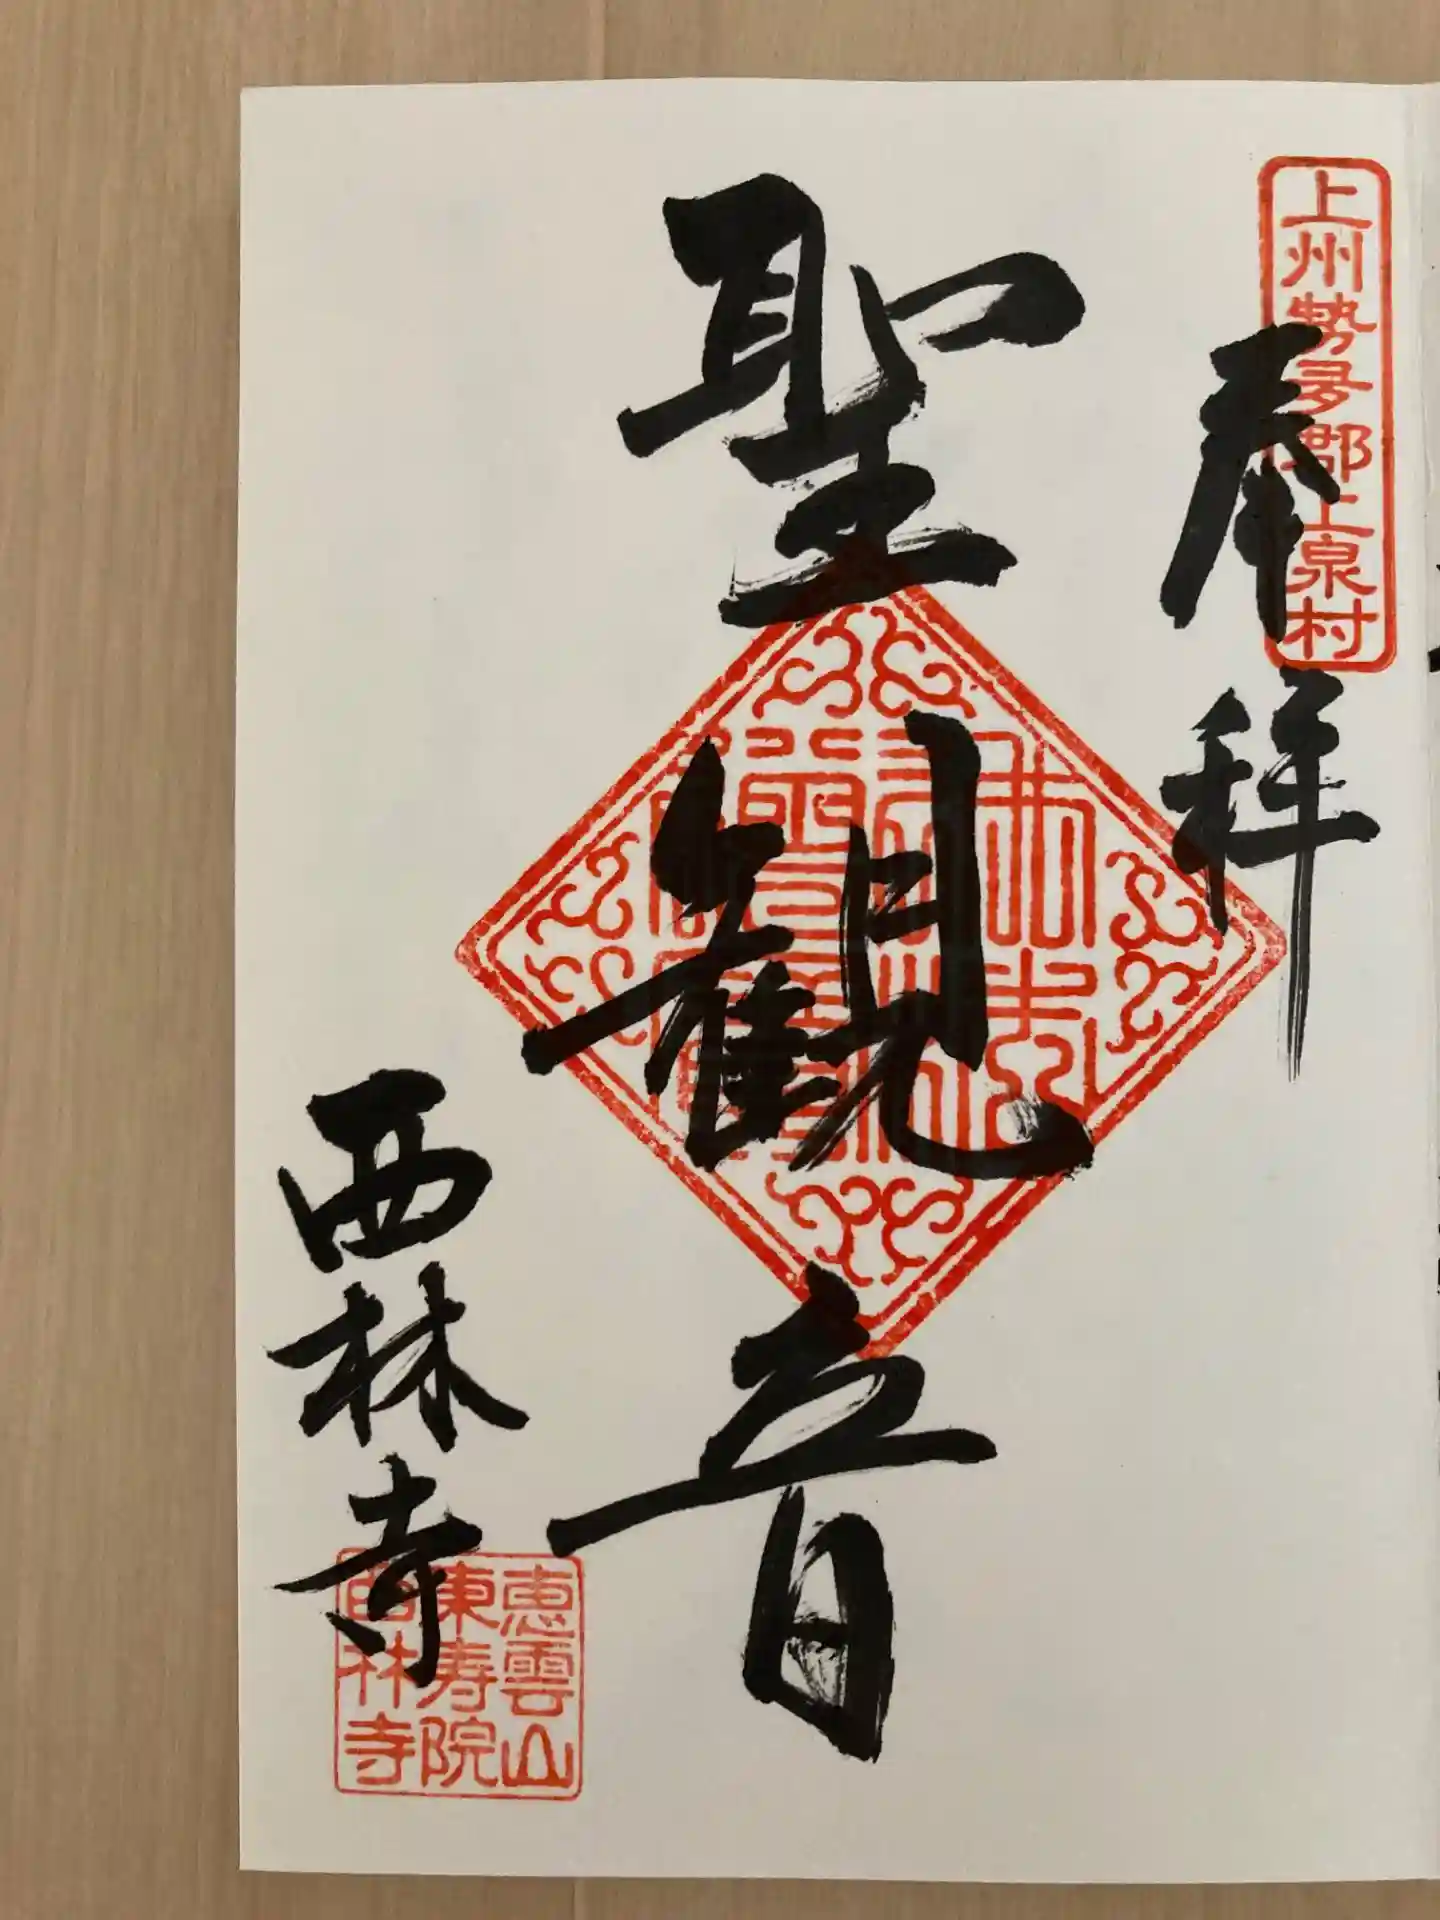 上州勢多郡上泉村
奉拝
聖観音
西林寺
恵雲山
東寿院
西林寺